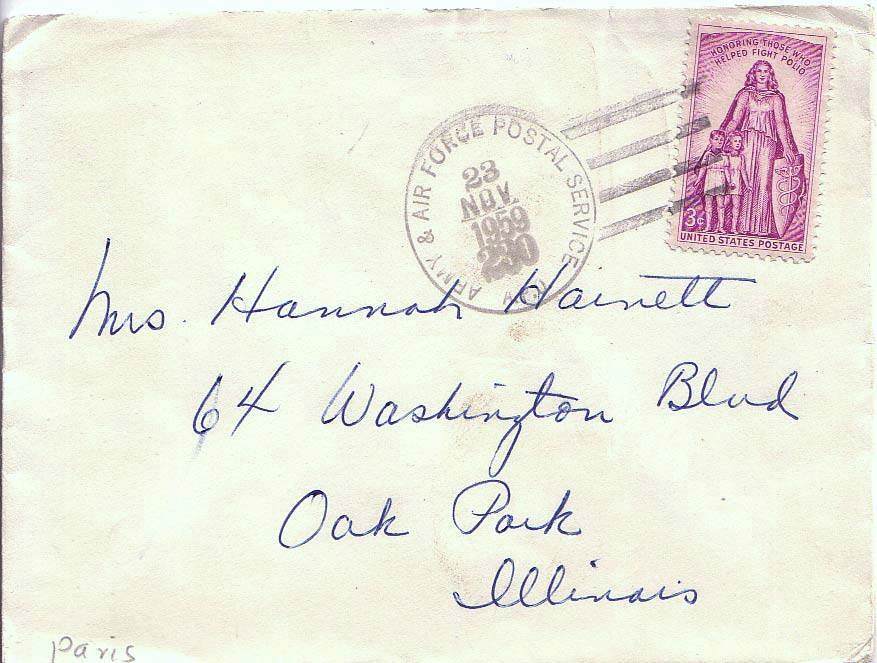 HONORING THOSE WHO
HELPED FIGHT POLIO
3¢
UNITED STATES POSTAGE
ARMY & AIR FORCE POSTAL SERVICE
APO
23
NOV.
1959
230
Mrs. Hannah Harnett
64 Washington Blvd
Oak Park
Illinois
Paris